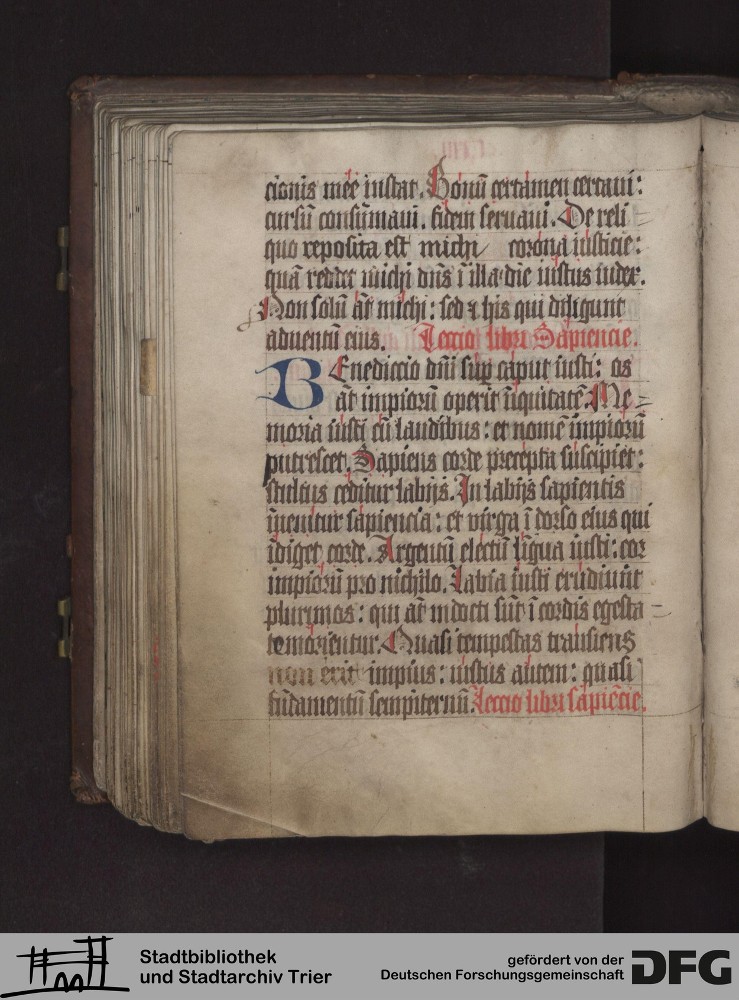 cionis mee instat. Bonū certamen certaui:
cursū consūmaui. fidem seruaui. De reli=
quo reposita est michi corona iusticie:
quā reddet michi dn̄s ī illa die iustus iudex.
Non solū āt michi: sed ⁊ his qui diligunt
aduentū eius. Leccio libri Sapiencie.
BEnediccio dn̄i sup caput iusti: os
āt impiorū operit īiquitatē. Me=
moria iusti cū laudibus: et nomē impiorū
putrescet. Sapiens corde precepta suscipiet:
stultus ceditur labijs. In labijs sapientis
īuenitur sapiencia: et virga ī dorso eius qui
īdiget corde. Argentū electū līgua iusti: cor
impiorū pro nichilo. Labia iusti erudiunt
plurimos: qui āt indocti sūt ī cordis egesta=
te morientur. Quasi tempestas transiens
non erit impius: iustus autem: quasi
fūdamentū sempiternū. Leccio libri sapiēcie.
Stadtbibliothek
und Stadtarchiv Trier
gefördert von der
Deutschen Forschungsgemeinschaft
DFG